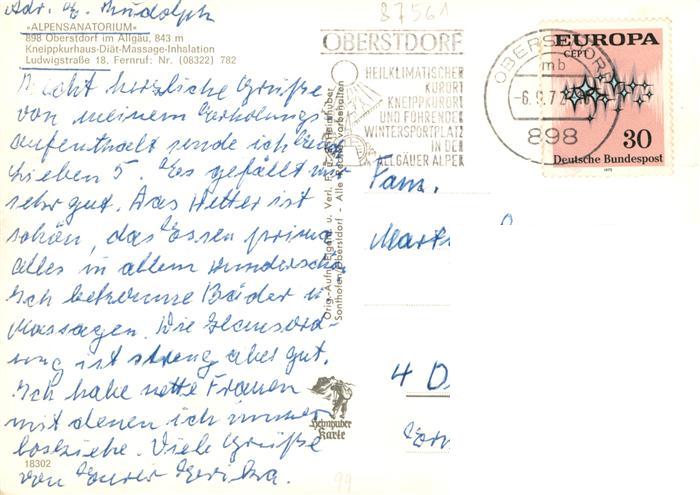 Adr. E. Rudolph
»ALPENSANATORIUM«
898 Oberstdorf im Allgäu, 843 m
Kneippkurhaus-Diät-Massage-Inhalation
Ludwigstraße 18, Fernruf: Nr. (08322) 782
Recht herzliche Grüße
von meinem Erholungs
aufenthalt sende ich Euch
Lieben 5. Es gefällt mir
sehr gut. Das Wetter ist
schön, das Essen prima
alles in allem wunderschön
Ich bekomme Bäder u
Massagen. Die Hausord-
nung ist streng aber gut.
Ich habe nette Frauen
mit denen ich immer
losziehe. Viele Grüße
von Eurer Erika.
18302
87561
OBERSTDORF
HEILKLIMATISCHER
KURORT
KNEIPPKURORT
UND FÜHRENDER
WINTERSPORTPLATZ
IN DEN
ALLGÄUER ALPEN
OBERSTDORF
mb
-6.9.72
898
EUROPA
CEPT
30
Deutsche Bundespost
1972
Orig.-Aufn. Eigent. u. Verl. Franz Heimhuber
Sonthofen/Oberstdorf - Alle Rechte vorbehalten
Heimhuber
Karte
Fam.
4 D
99